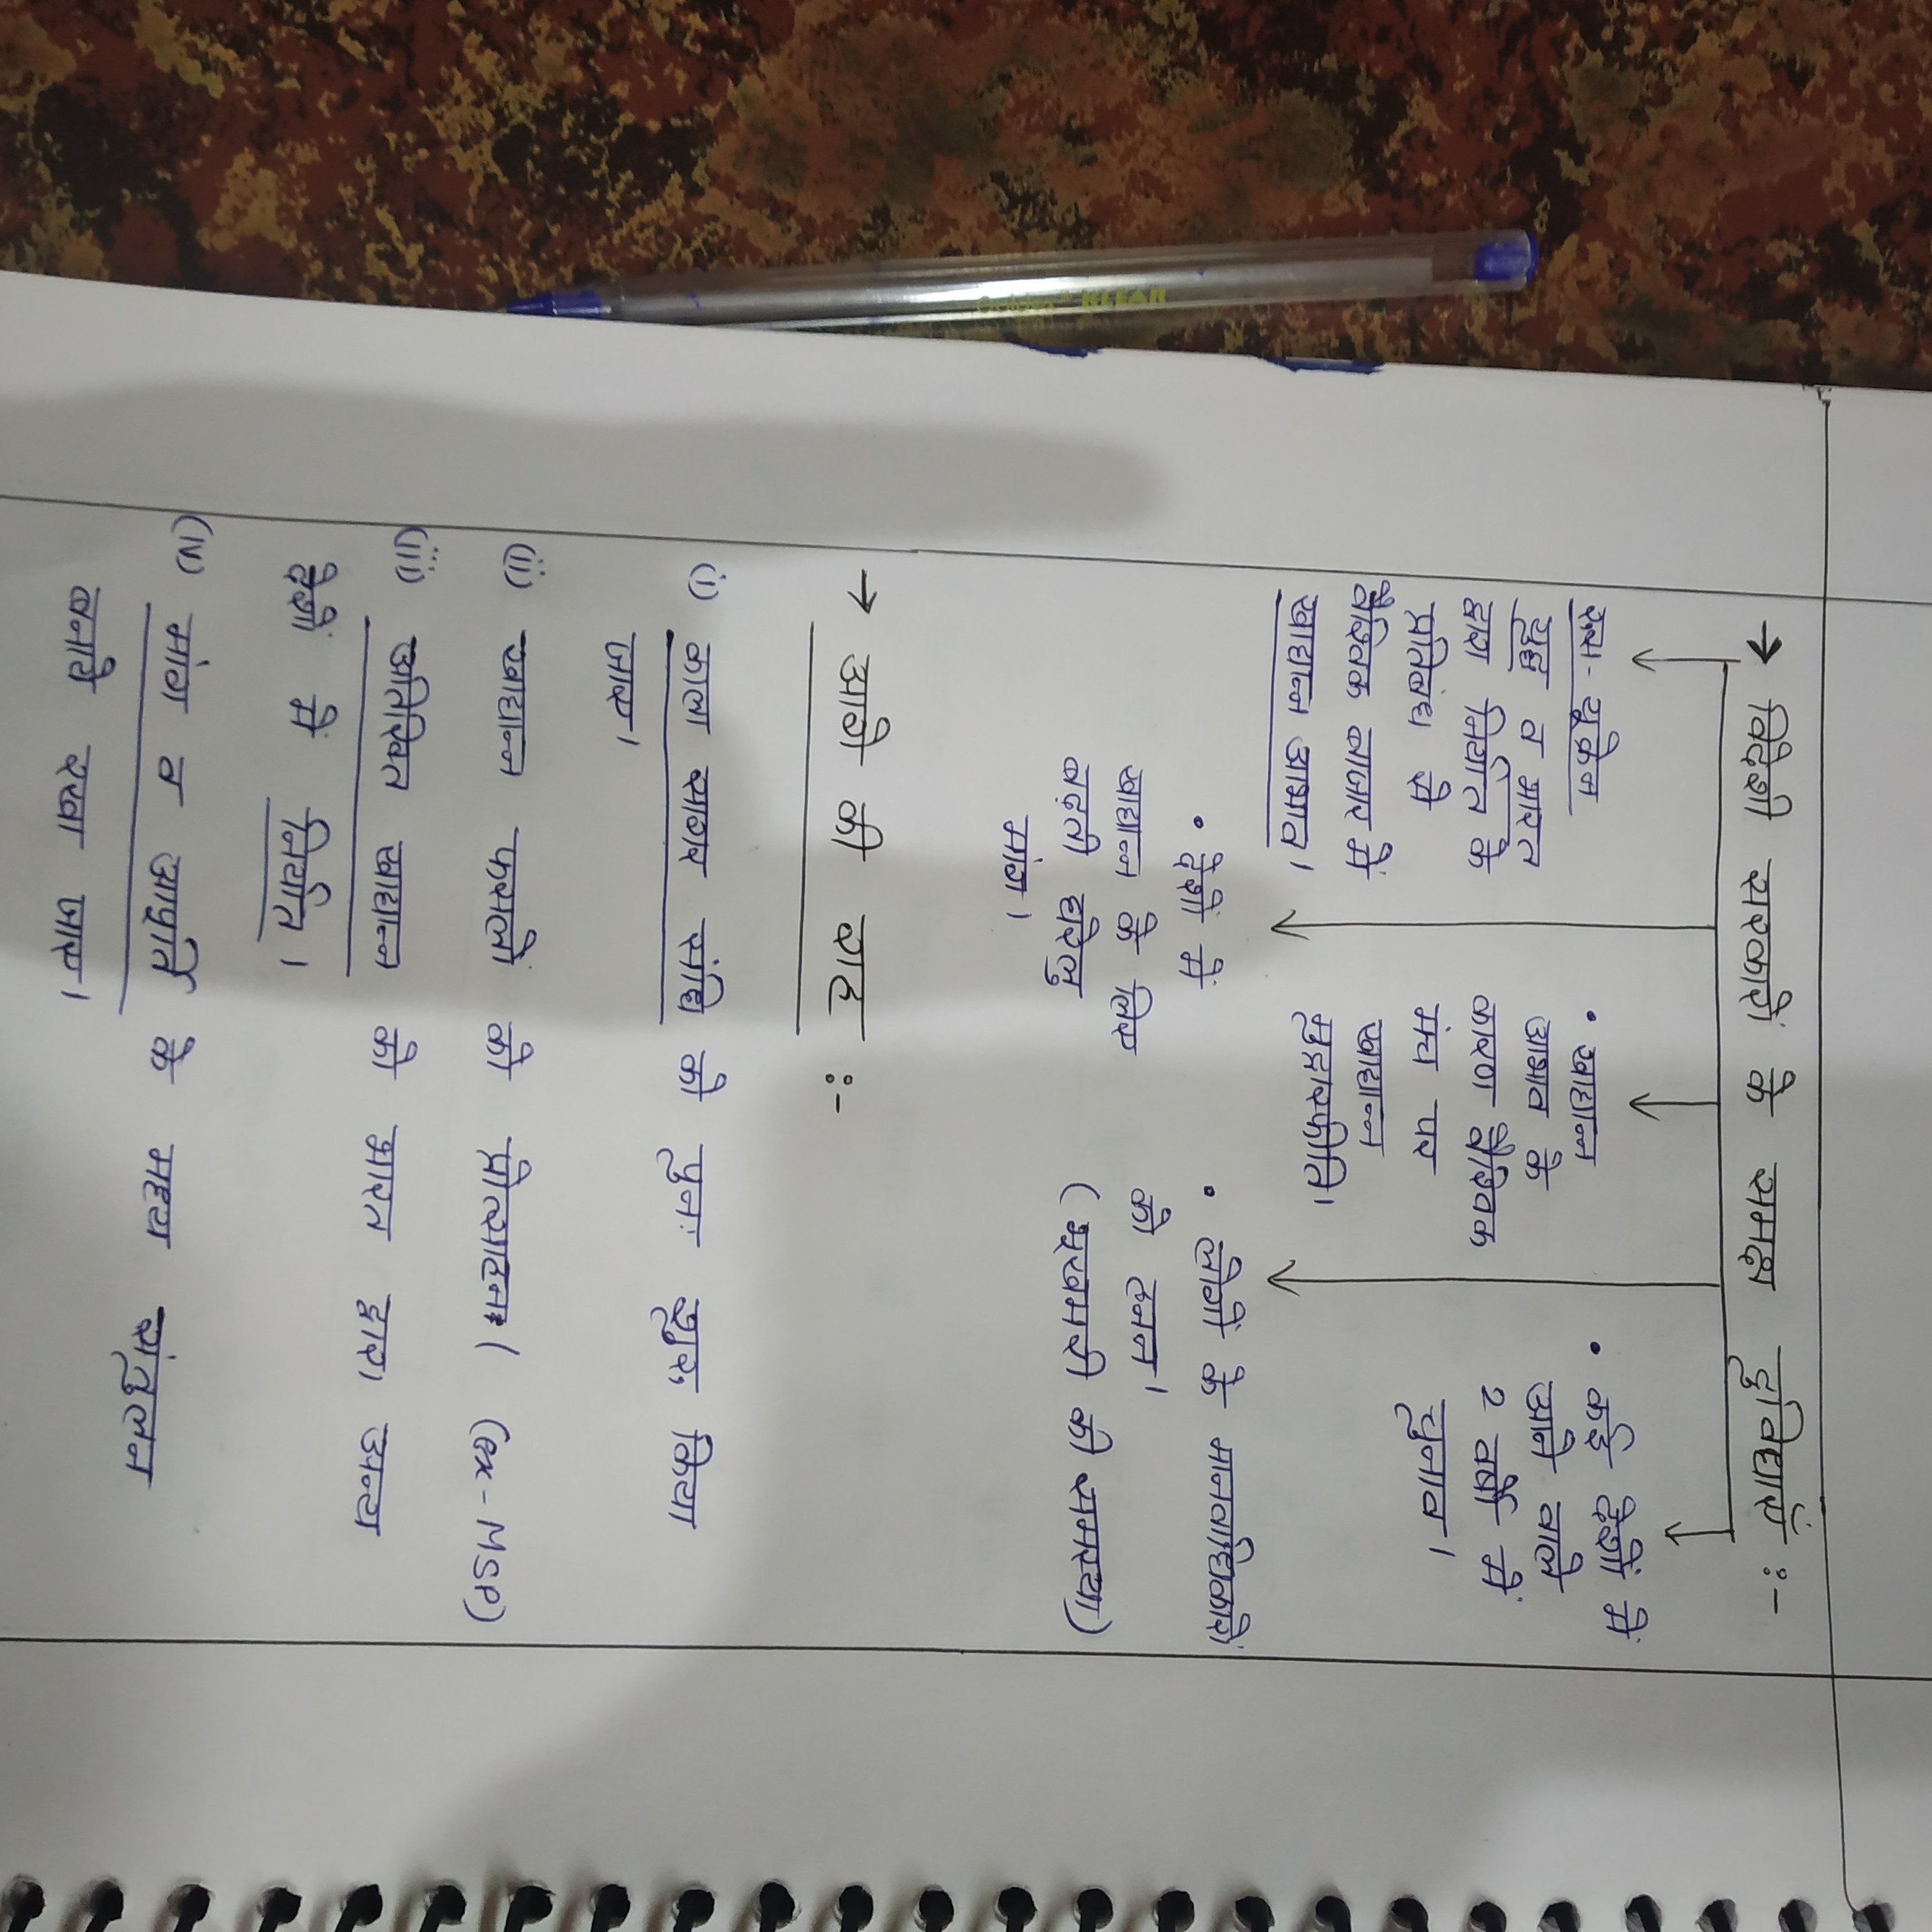 → विदेशी सरकारों के समक्ष दुविधाएँ :-
रूस-यूक्रेन
युद्ध व भारत
द्वारा निर्यात के
प्रतिबंध से
वैश्विक बाजार में
खाद्यान्न अभाव।
• देशों में
खाद्यान्न के लिए
बढ़ती घरेलू
मांग।
• खाद्यान्न
अभाव के
कारण वैश्विक
मंच पर
खाद्यान्न
मुद्रास्फीति।
• लोगों के मानवाधिकारों
को हनन।
(भूखमरी की समस्या)
• कई देशों में
आने वाले
2 वर्षों में
चुनाव।
→ आगे की राह :-
(i) काला सागर संधि को पुनः शुरू किया
जाए।
(ii) खाद्यान्न फसलों को प्रोत्साहन। (ex-MSP)
(iii) अतिरिक्त खाद्यान्न को भारत द्वारा अन्य
देशों में निर्यात।
(iv) मांग व आपूर्ति के मध्य संतुलन
बनाये रखा जाए।
KLEAR